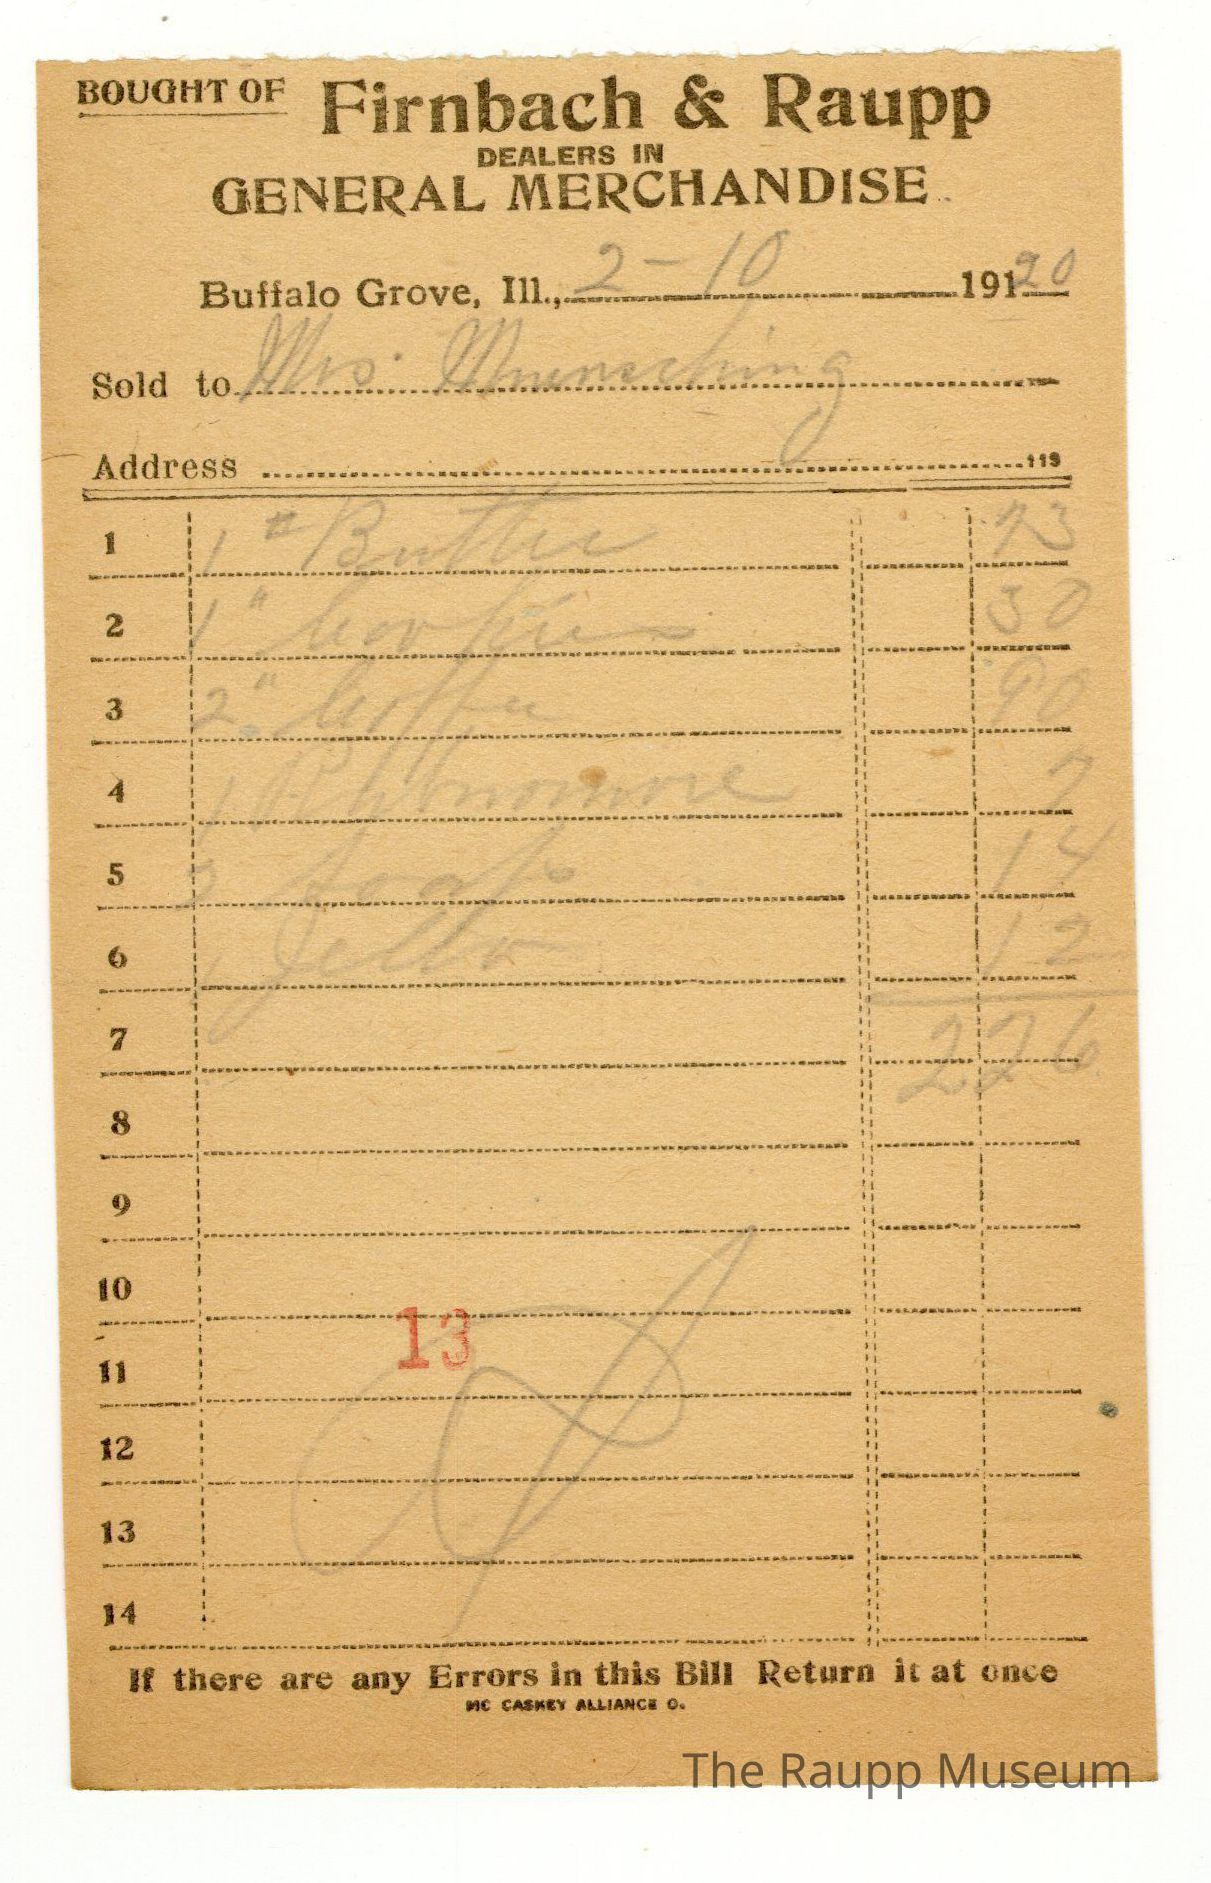 BOUGHT OF Firnbach & Raupp
DEALERS IN
GENERAL MERCHANDISE
Buffalo Grove, Ill., 2-10 19120
Sold to Mrs. Muensching
Address
1 1 # Butter 73
2 1 " Cookies 30
3 2 " Coffee 90
4 1 7
5 2 Soap 14
6 1 Jello 12
7 226
8
9
10
13
11
12
13
14
If there are any Errors in this Bill Return it at once
MC CASKEY ALLIANCE O.
The Raupp Museum